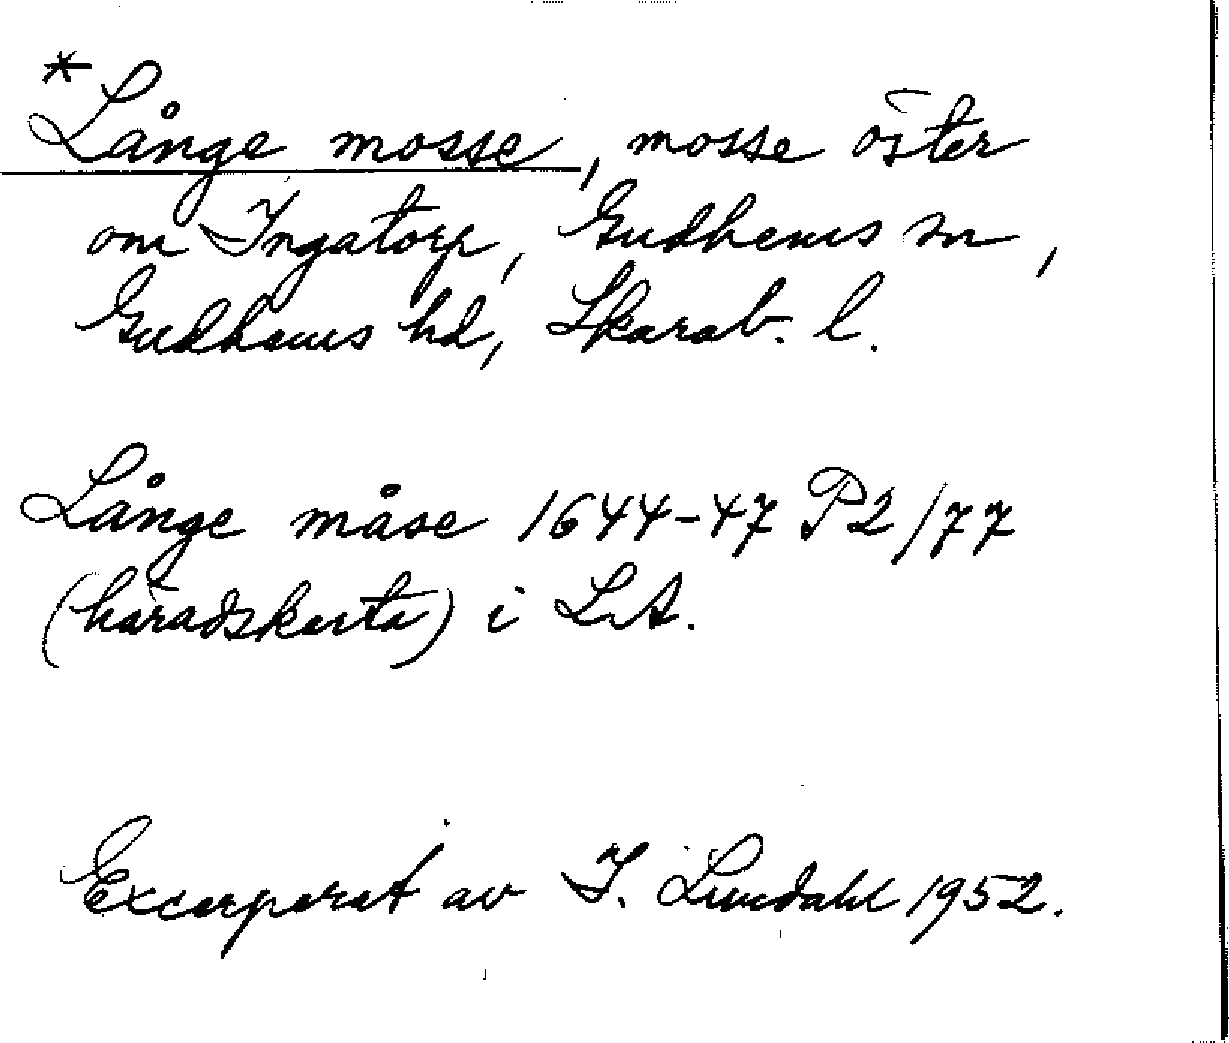 *Långe mosse, mosse öster
om Ingatorp, Gudhems sn,
Gudhems hd, Skarab. l.
Långe måse 1644-47 P2/77
(häradskarta) i LA.
Excerperat av I. Lundahl 1952.